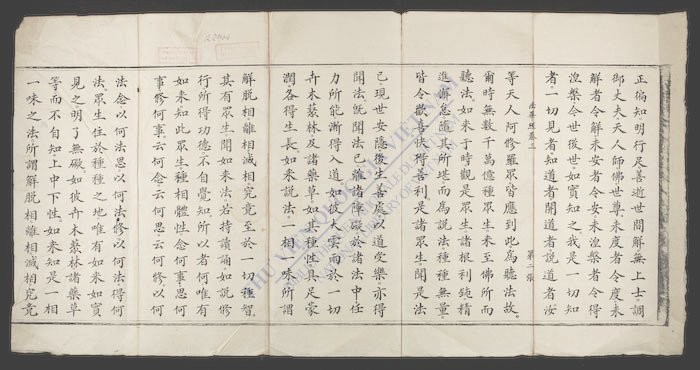 正徧知明行足善逝世間解無上士調
御丈夫天人師佛世尊未度者令度未
解者令解未安者令安未涅槃者令得
涅槃今世後世如實知之我是一切知
者一切見者知道者開道者說道者汝
法華經卷三 第二張
等天人阿修羅眾皆應到此為聽法故
爾時無數千萬億種眾生來至佛所而
聽法如來于時觀是眾生諸根利鈍精
進懈怠隨其所堪而為說法種種無量
皆令歡喜快得善利是諸眾生聞是法
已現世安隱後生善處以道受樂亦得
聞法既聞法已離諸障礙於諸法中任
力所能漸得入道如彼大雲雨於一切
卉木叢林及諸藥草如其種性具足蒙
潤各得生長如來說法一相一味所謂
解脫相離相滅相究竟至於一切種智
其有眾生聞如來法若持讀誦如說修
行所得功德不自覺知所以者何唯有
如來知此眾生種相體性念何事思何
事修何事云何念云何思云何修以何
法念以何法思以何法修以何法得何
法眾生住於種種之地唯有如來如實
見之明了無礙如彼卉木叢林諸藥草
等而不自知上中下性如來知是一相
一味之法所謂解脫相離相滅相究竟
THƯ VIỆN QUỐC GIA VIỆT NAM